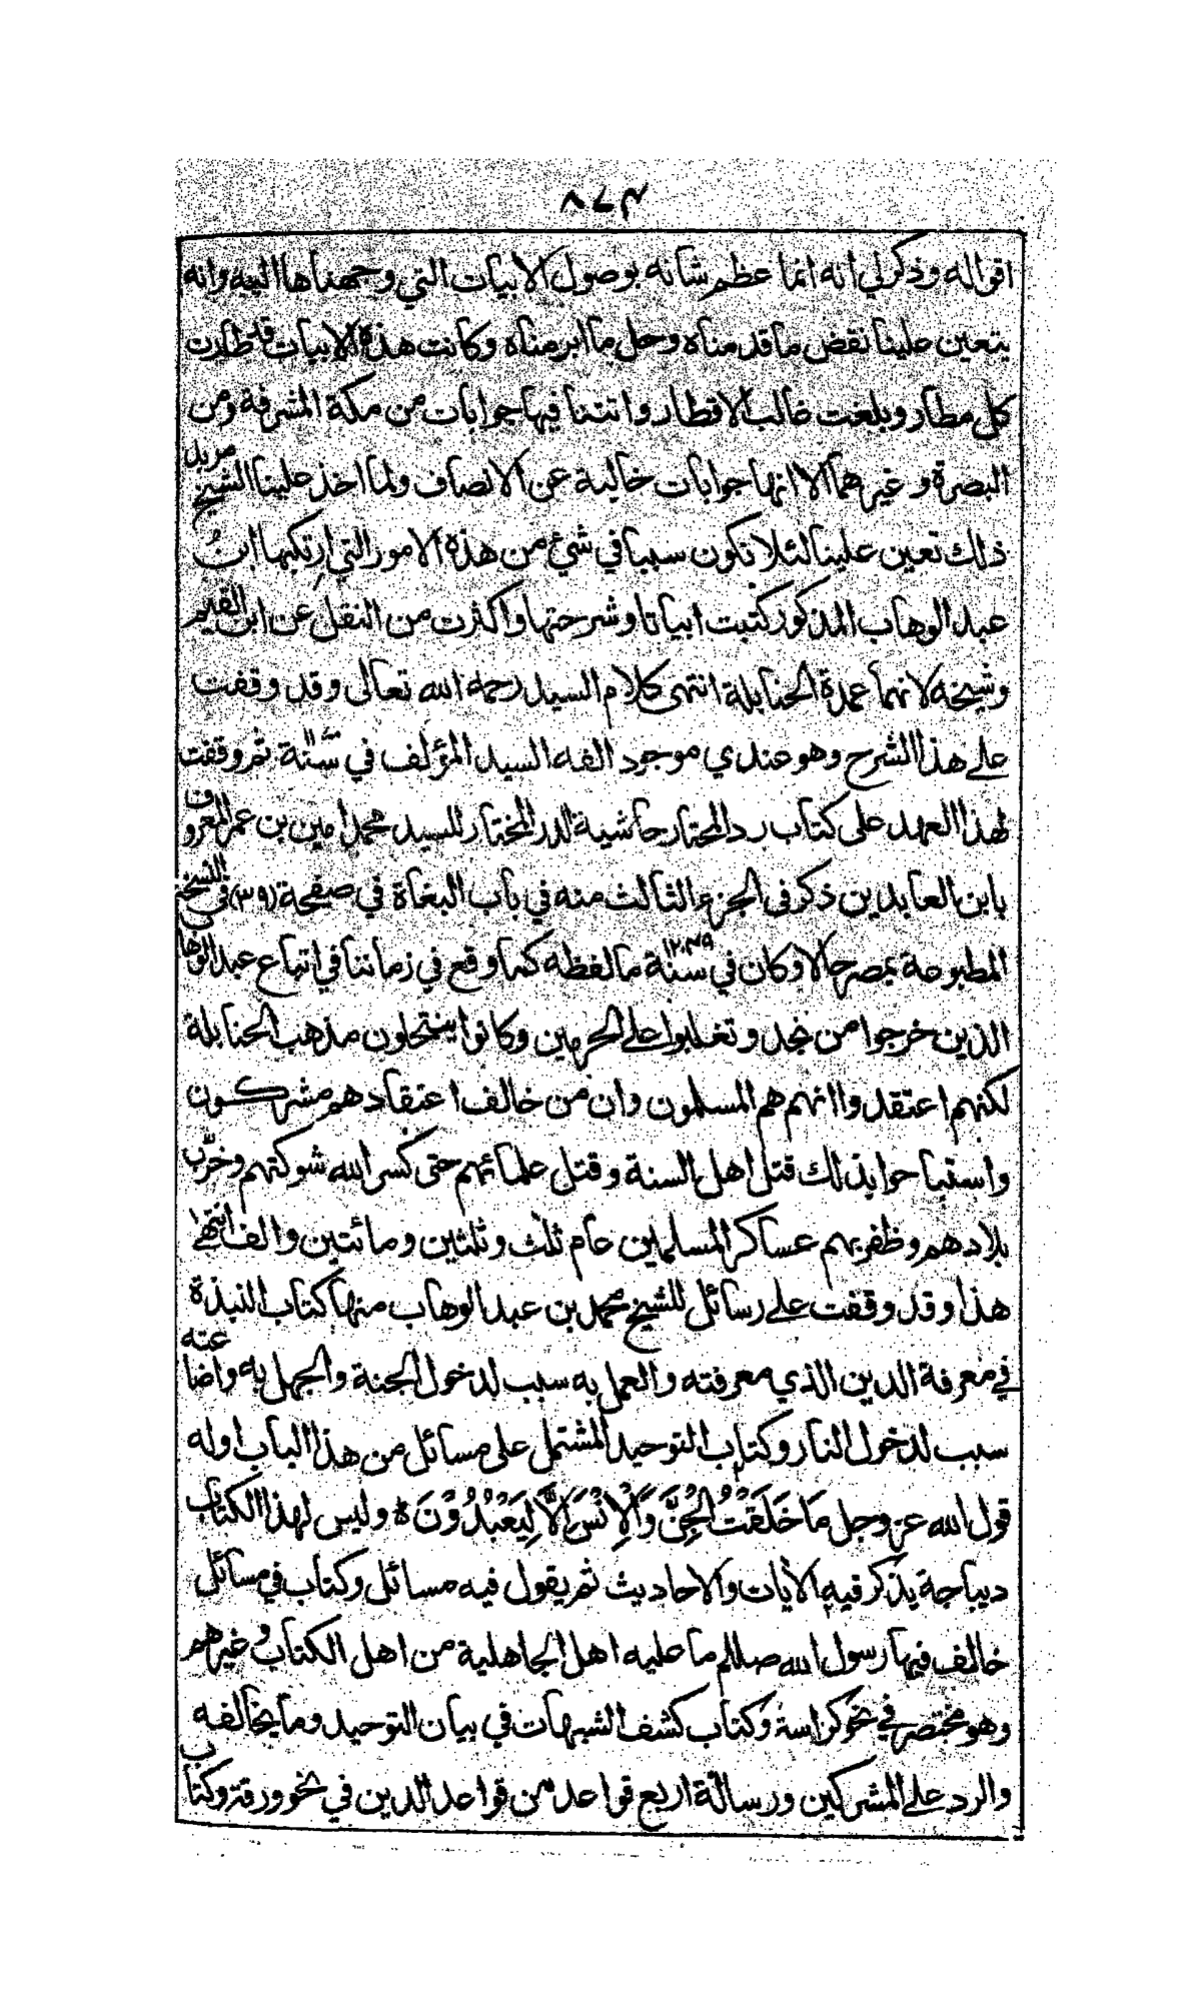 ٨٧٣
اقواله وذكر لي انه انما عظم شانه بوصول الابيات التي وجهناها اليه وانه
يتعين علينا نقض ما قدمناه وحل ما ابرمناه وكانت هذه الابيات قد طارت
كل مطار وبلغت غالب الاقطار واتتنا فيها جوابات من مكة المشرفة ومن
البصرة وغيرهما الا انها جوابات خالية عن الانصاف ولما اخذ علينا الشيخ مربد
ذلك تعين علينا لئلا تكون سببا في شئ من هذه الامور التي ارتكبها ابنُ
عبد الوهاب المذكور كتبت ابياتا وشرحتها واكثرت من النقل عن ابن القيم
وشيخه لانهما عمدة الحنابلة انتهى كلام السيد رحمه الله تعالى وقد وقفت
على هذا الشرح وهو عندي موجود الفه السيد المؤلف في سنة ثم وقفت
لهذا العهد على كتاب رد المحتار حاشية الدر المختار للسيد محمد امين بن عمر المعروف
بابن العابدين ذكر فى الجزء الثالث منه في باب البغاة في صفحة (٣٩) فى النسخة
المطبوعة بمصر حالا وكان في سنة ١٢٤٩ ما لفظه كما وقع في زماننا في اتباع عبد الوهاب
الذين خرجوا من نجد وتغلبوا على الحرمين وكانوا ينتحلون مذهب الحنابلة
لكنهم اعتقدوا انهم هم المسلمون وان من خالف اعتقادهم مشركون
واستباحوا بذلك قتل اهل السنة وقتل علمائهم حتى كسر الله شوكتهم وخرّب
بلادهم وظفر بهم عساكر المسلمين عام ثلث وثلثين ومائتين والف انتهى
هذا وقد وقفت على رسائل للشيخ محمد بن عبد الوهاب منها كتاب النبذة
في معرفة الدين الذي معرفته والعمل به سبب لدخول الجنة والجهل به واضاعته
سبب لدخول النار وكتاب التوحيد المشتمل على مسائل من هذا الباب اوله
قول الله عز وجل مَا خَلَقْتُ الْجِنَّ وَالْاِنْسَ اِلَّا لِيَعْبُدُوْنَ ط وليس لهذا الكتاب
ديباجة يذكر فيه الآيات والاحاديث ثم يقول فيه مسائل وكتاب في مسائل
خالف فيها رسول الله صللم ما عليه اهل الجاهلية من اهل الكتاب وغيرهم
وهو مختصر في نحو كراسة وكتاب كشف الشبهات في بيان التوحيد وما يخالفه
والرد على المشركين ورسالة اربع قواعد من قواعد الدين في نحو ورقة وكتاب